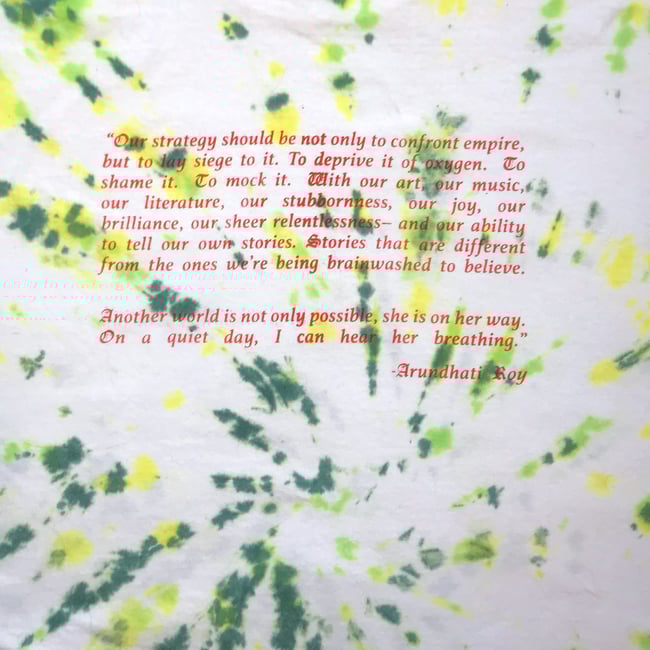 “Our strategy should be not only to confront empire,
but to lay siege to it. To deprive it of oxygen. To
shame it. To mock it. With our art, our music,
our literature, our stubbornness, our joy, our
brilliance, our sheer relentlessness– and our ability
to tell our own stories. Stories that are different
from the ones we're being brainwashed to believe.
Another world is not only possible, she is on her way.
On a quiet day, I can hear her breathing.”
-Arundhati Roy